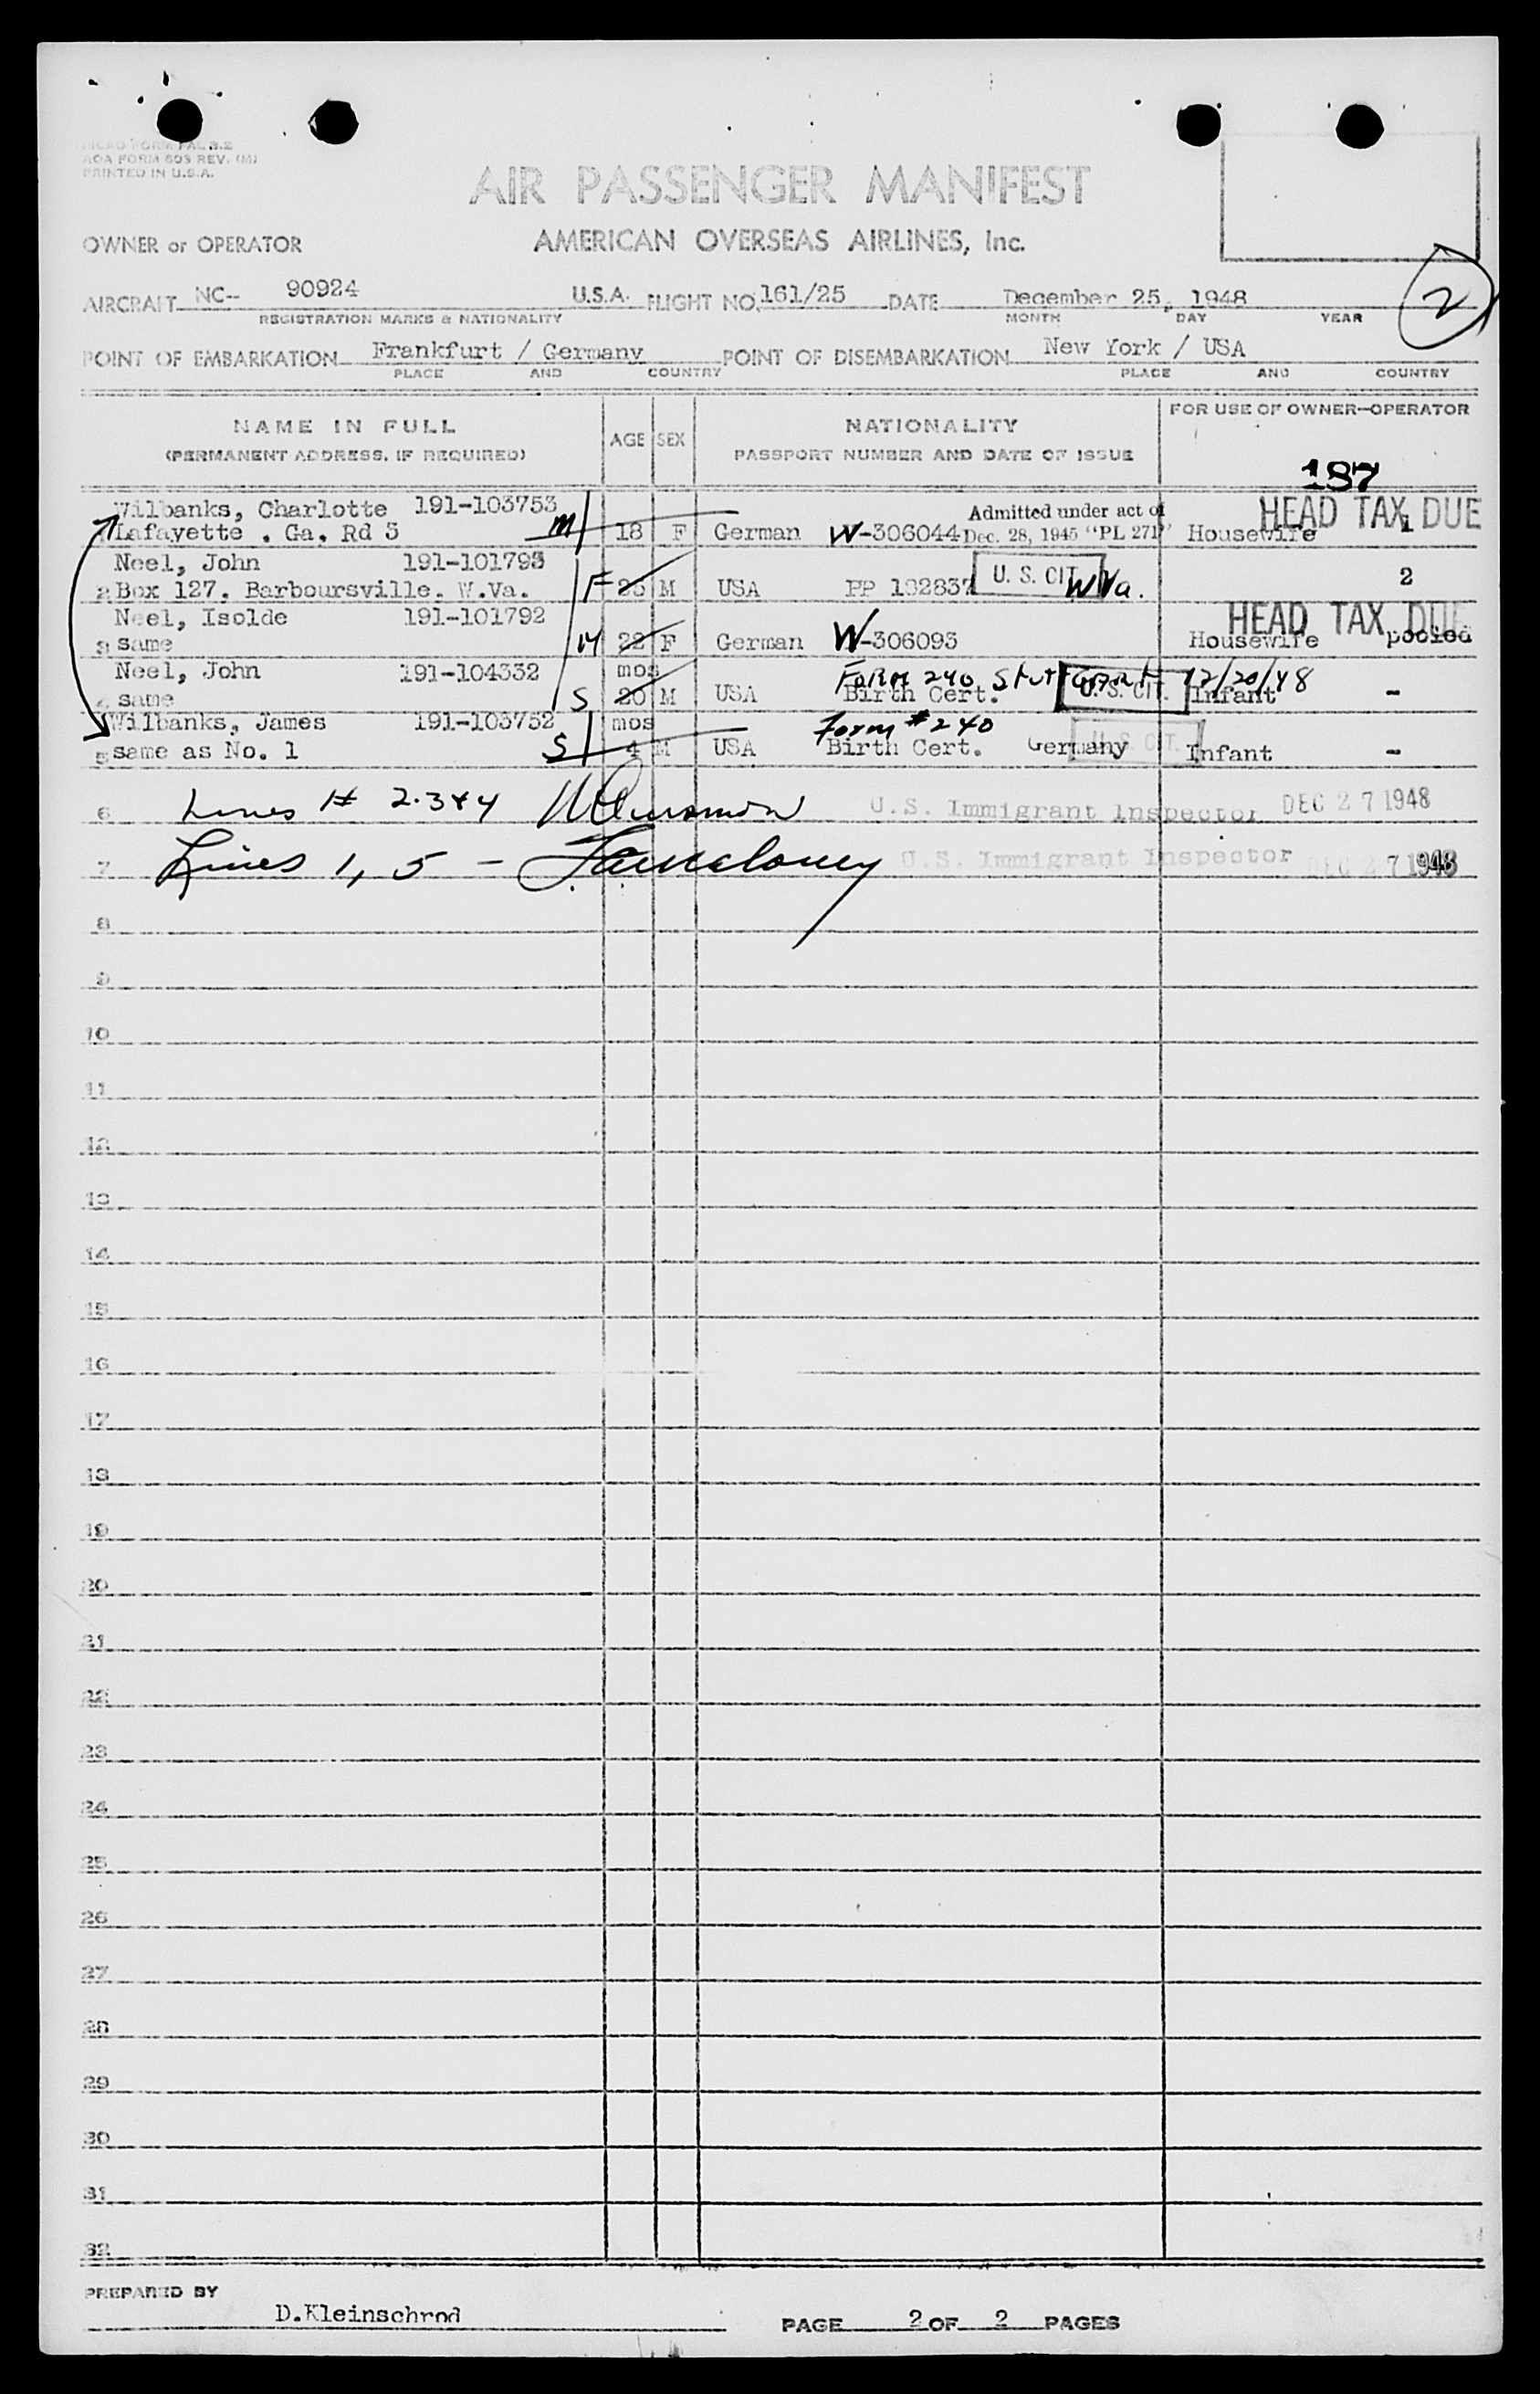 AOA FORM 603 REV. (M)
PRINTED IN U.S.A.
AIR PASSENGER MANIFEST
OWNER or OPERATOR AMERICAN OVERSEAS AIRLINES, Inc.
AIRCRAFT NC-- 90924 U.S.A. FLIGHT NO. 161/25 DATE December 25, 1948 2
REGISTRATION MARKS & NATIONALITY MONTH DAY YEAR
POINT OF EMBARKATION Frankfurt / Germany POINT OF DISEMBARKATION New York / USA
PLACE AND COUNTRY PLACE AND COUNTRY
NAME IN FULL AGE SEX NATIONALITY FOR USE OF OWNER-OPERATOR
(PERMANENT ADDRESS, IF REQUIRED) PASSPORT NUMBER AND DATE OF ISSUE
187
Wilbanks, Charlotte 191-103753 Admitted under act of HEAD TAX DUE
Lafayette . Ga. Rd 3 M 18 F German W-306044 Dec. 28, 1945 "PL 271" Housewife 1
Neel, John 191-101793 U. S. CIT. 2
2 Box 127. Barboursville. W.Va. F 26 M USA PP 182837 W Va.
Neel, Isolde 191-101792 HEAD TAX DUE
3 same M 22 F German W-306093 Housewife pooled
Neel, John 191-104332 mos Form 240 Stuttgart 12/20/48
4 same S 20 M USA Birth Cert. U.S. CIT. Infant -
Wilbanks, James 191-103752 mos Form #240
5 same as No. 1 S 4 M USA Birth Cert. Germany U.S. CIT. Infant -
6 Lines # 2.3&4 U.S. Immigrant Inspector DEC 27 1948
7 Lines 1, 5 - U.S. Immigrant Inspector DEC 27 1948
8
9
10
11
12
13
14
15
16
17
18
19
20
21
22
23
24
25
26
27
28
29
30
31
32
PREPARED BY
D.Kleinschrod PAGE 2 OF 2 PAGES